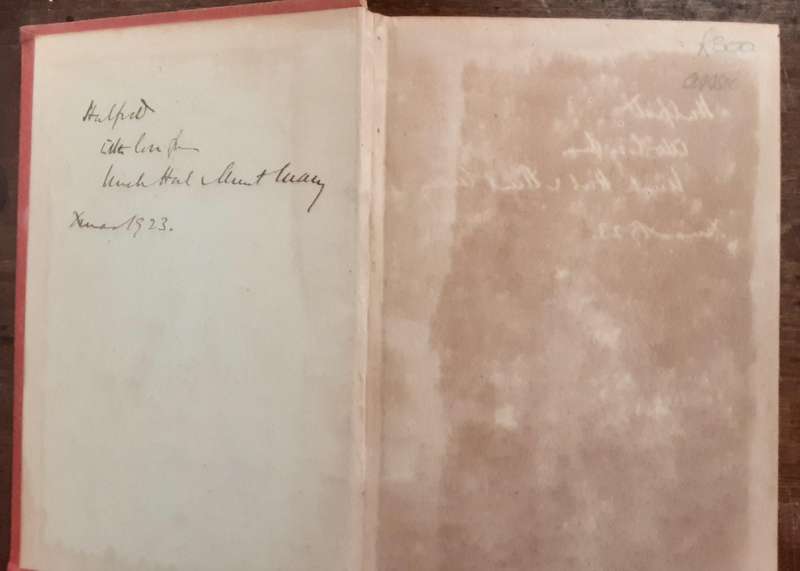 Halford
with love from
Uncle Hal & Aunt Mary
Xmas 1923.
£500